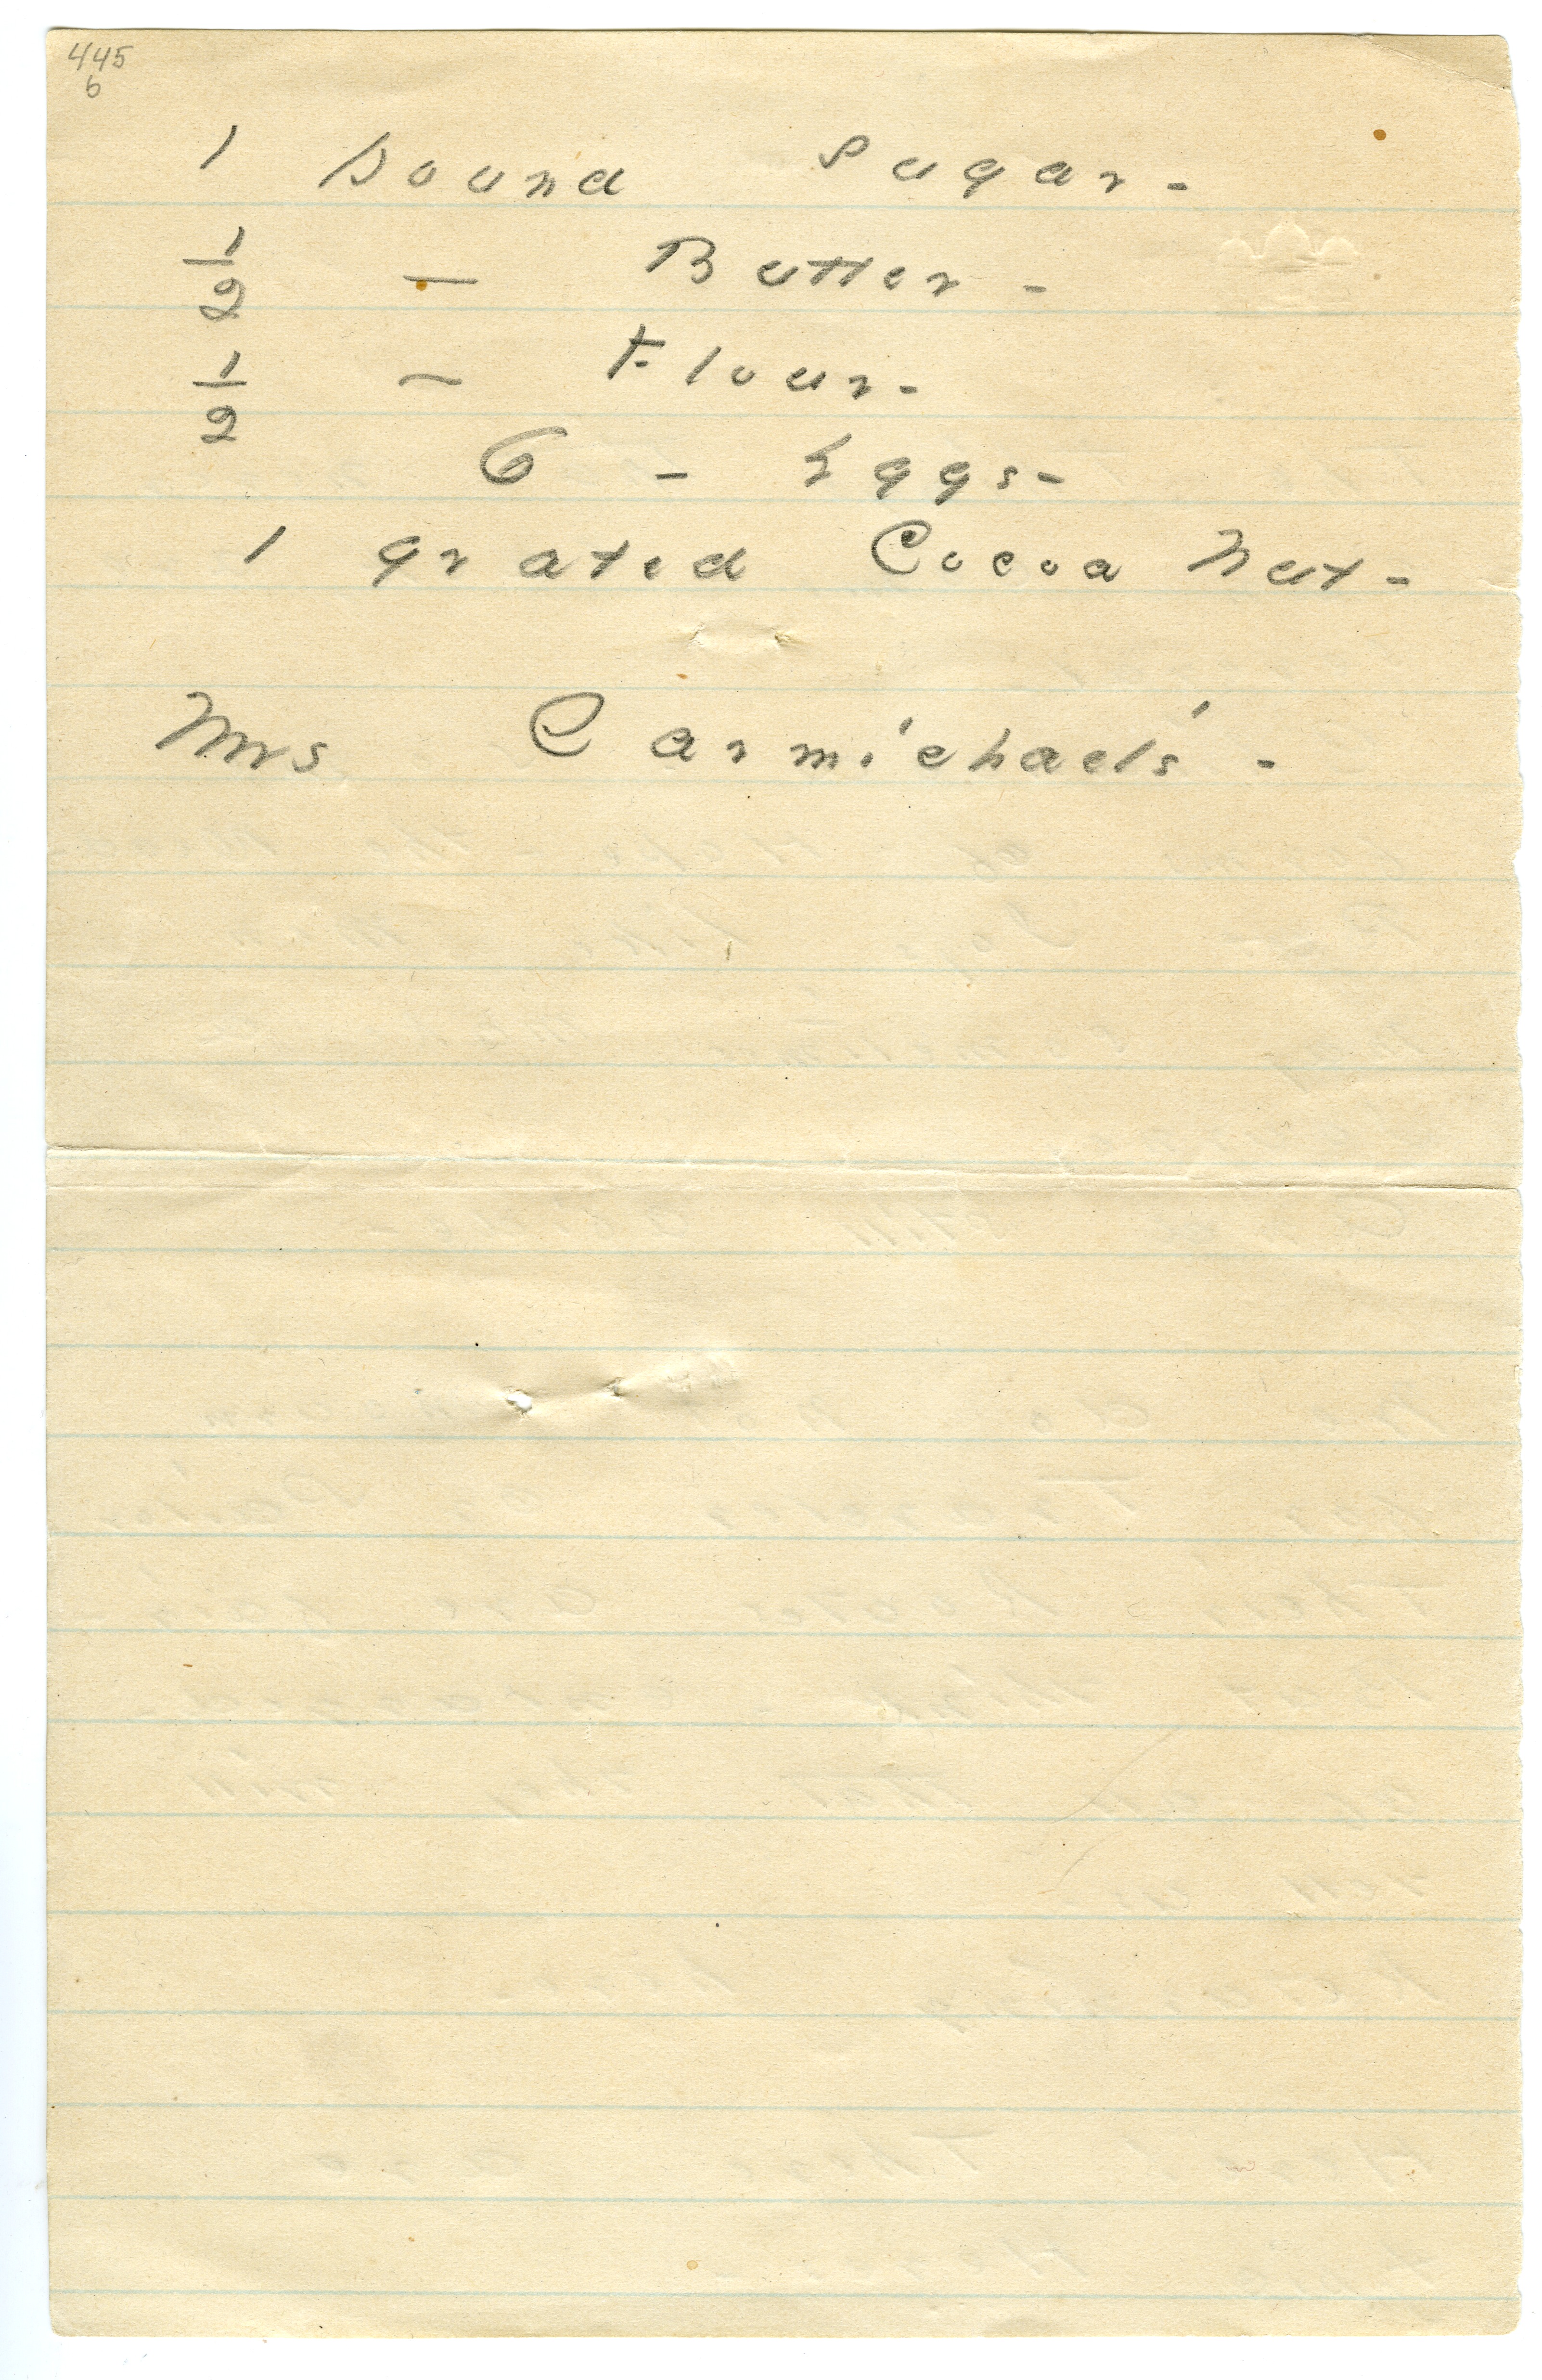 445
6
1 pound Sugar -
1/2 — Butter -
1/2 ~ Flour -
6 - Eggs -
1 grated Cocoa Nut -
Mrs Carmichael's' -